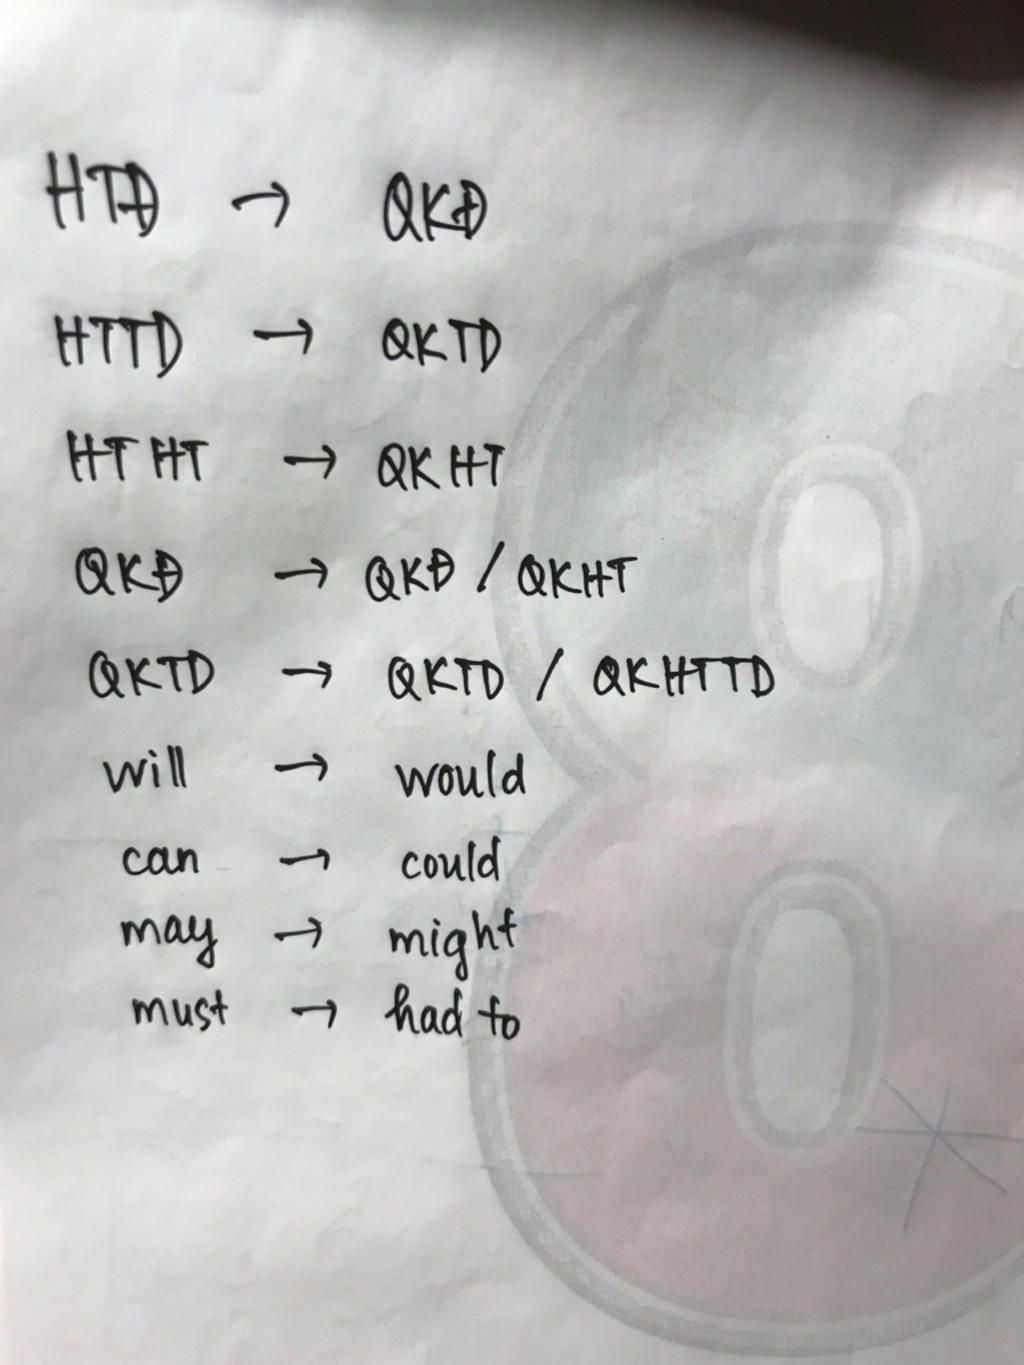 HTĐ → QKĐ
HTTD → QKTD
HT HT → QKHT
QKĐ → QKĐ / QKHT
QKTD → QKTD / QKHTTD
will → would
can → could
may → might
must → had to